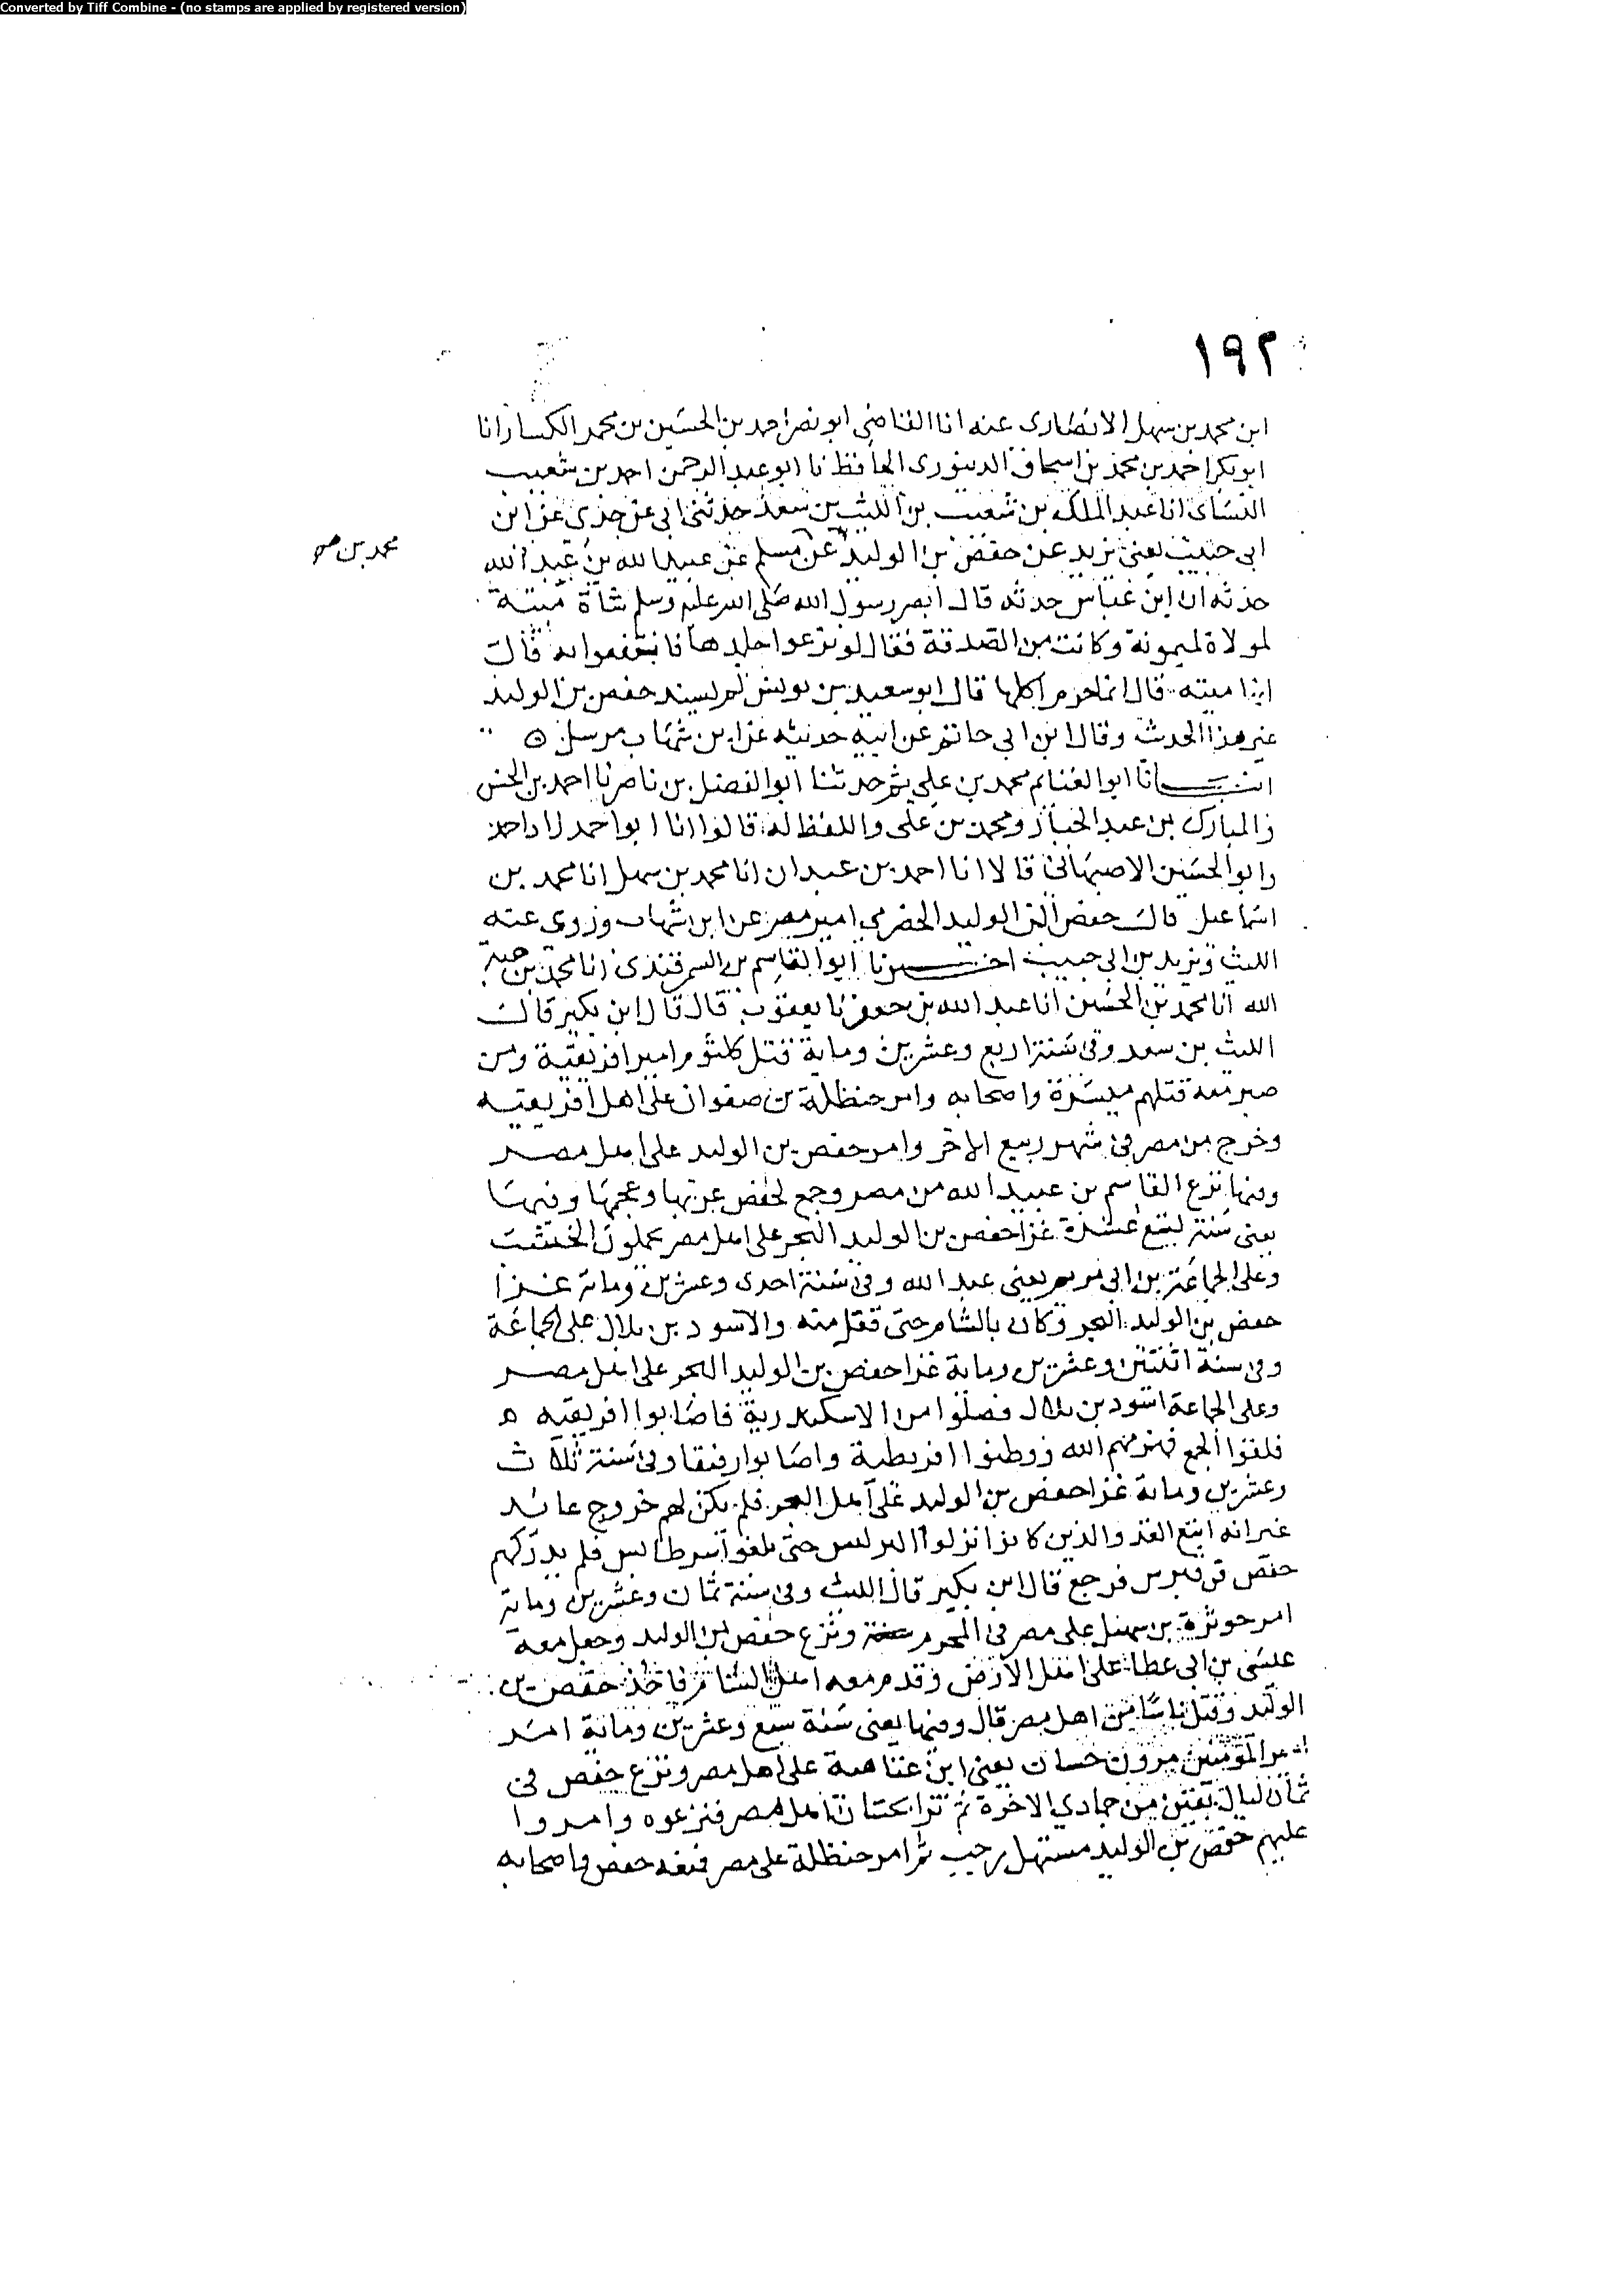 Converted by Tiff Combine - (no stamps are applied by registered version)
١٩٢
ابن محمد بن سهل الانصارى عنه انا القاضي ابو نصر احمد بن الحسين بن محمد الكسار انا
ابو بكر احمد بن محمد بن اسحاق الدينورى الحافظ نا ابو عبد الرحمن احمد بن شعيب
النسائ انا عبد الملك بن شعيب بن الليث بن سعد حدثنى ابى عن جدى عن ابن
ابى حبيب يعنى يزيد عن حفص بن الوليد عن مسلم عن عبيد الله بن عبد الله
محمد بن صح
حدثه ان ابن عباس حدثه قال ابصر رسول الله صلى الله عليه وسلم شاة ميتة
لمولاة لميمونة وكانت من الصدقة فقال لو نزعوا جلدها فانتفعوا به قالت
انها ميته قال انما حرم اكلها قال ابو سعيد بن يونس لم يسند حفص بن الوليد
غير هذا الحديث وقال ابن ابي حاتم عن ابيه حديثه عن ابن شهاب مرسل ه
انبانا ابو الغنايم محمد بن علي ثم حدثنا ابو الفضل بن ناصر نا احمد بن الحسن
والمبارك بن عبد الجبار ومحمد بن على واللفظ له قالوا انا ابو احمد زاد احمد
وابو الحسين الاصبهاني قالا انا احمد بن عبدان انا محمد بن سهل انا محمد بن
اسماعيل قال حفص بن الوليد الحضرمي امير مصر عن ابن شهاب وروى عنه
الليث ويزيد بن ابي حبيب اخبرنا ابو القاسم بن السمرقندى انا محمد بن هبة
الله انا محمد بن الحسين انا عبد الله بن جعفر نا يعقوب قال قال ابن بكير قال
الليث بن سعد وفى سنة اربع وعشرين وماية قتل كلثوم امير افريقية ومن
صبر معه قتلهم ميسرة واصحابه وامر حنظلة بن صفوان على اهل افريقيه
وخرج من مصر فى شهر ربيع الاخر وامر حفص بن الوليد على اهل مصر
وفيها نزع القاسم بن عبيد الله من مصر وجمع لحفص عربها وعجمها وفيها
يعنى سنة تسع عشرة غزا حفص بن الوليد البحر على اهل مصر يحملون الخشب
وعلى الجماعة بن ابي مريم يعنى عبد الله وفى سنة احدى وعشرين وماية غزا
حفص بن الوليد البحر وكان بالشام حتى قفل منه والاسود بن بلال على الجماعة
وفى سنة اثنتين وعشرين وماية غزا حفص بن الوليد البحر على اهل مصر
وعلى الجماعة اسود بن بلال فصلوا من الاسكندرية فاصابوا افريقيه ه
فلقوا الجمع فهزمهم الله ووطنوا افريطية واصابوا رقيقا وفى سنة ثلاث
وعشرين وماية غزا حفص بن الوليد على اهل البحر فلم يكن لهم خروج عائد
غير انه اتبع العدو الذين كانوا نزلوا البرلس حتى بلغوا فلم يدركهم
حفص فرجع قال ابن بكير قال الليث وفى سنة ثمان وعشرين وماية
امر حوثرة بن سهيل على مصر فى المحرم ونزع حفص بن الوليد وجعل معه
عيسى بن ابى عطا على اهل الارض وقدم معه اهل الشام فاخذ حفص بن
الوليد وقتل ناسا من اهل مصر قال وفيها يعنى سنة سبع وعشرين وماية امر
امير المؤمنين مرون حسان يعني ابن عتاهية على اهل مصر ونزع حفص فى
ثمان ليال بقين من جمادي الاخرة ثم اهل مصر فنزعوه وامروا
عليهم حفص بن الوليد مستهل رجب ثم امر حنظلة على مصر فمنعه حفص واصحابه